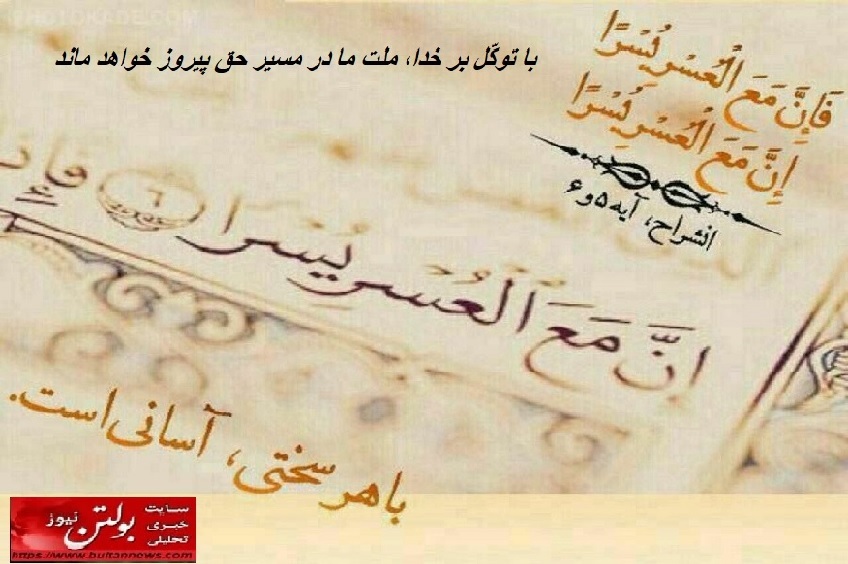 PHOTOKADE.COM
با توکّل بر خدا، ملت ما در مسیر حق پیروز خواهد ماند
فَإِنَّ مَعَ الْعُسْرِ يُسْرًا
إِنَّ مَعَ الْعُسْرِ يُسْرًا
انشراح، آیه ۵ و ۶
٦
إِنَّ مَعَ الْعُسرِ يُسرا
با هر سختی، آسانی است.
سایت
خبری
تحلیلی
بولتن نیوز
https://www.bultannews.com